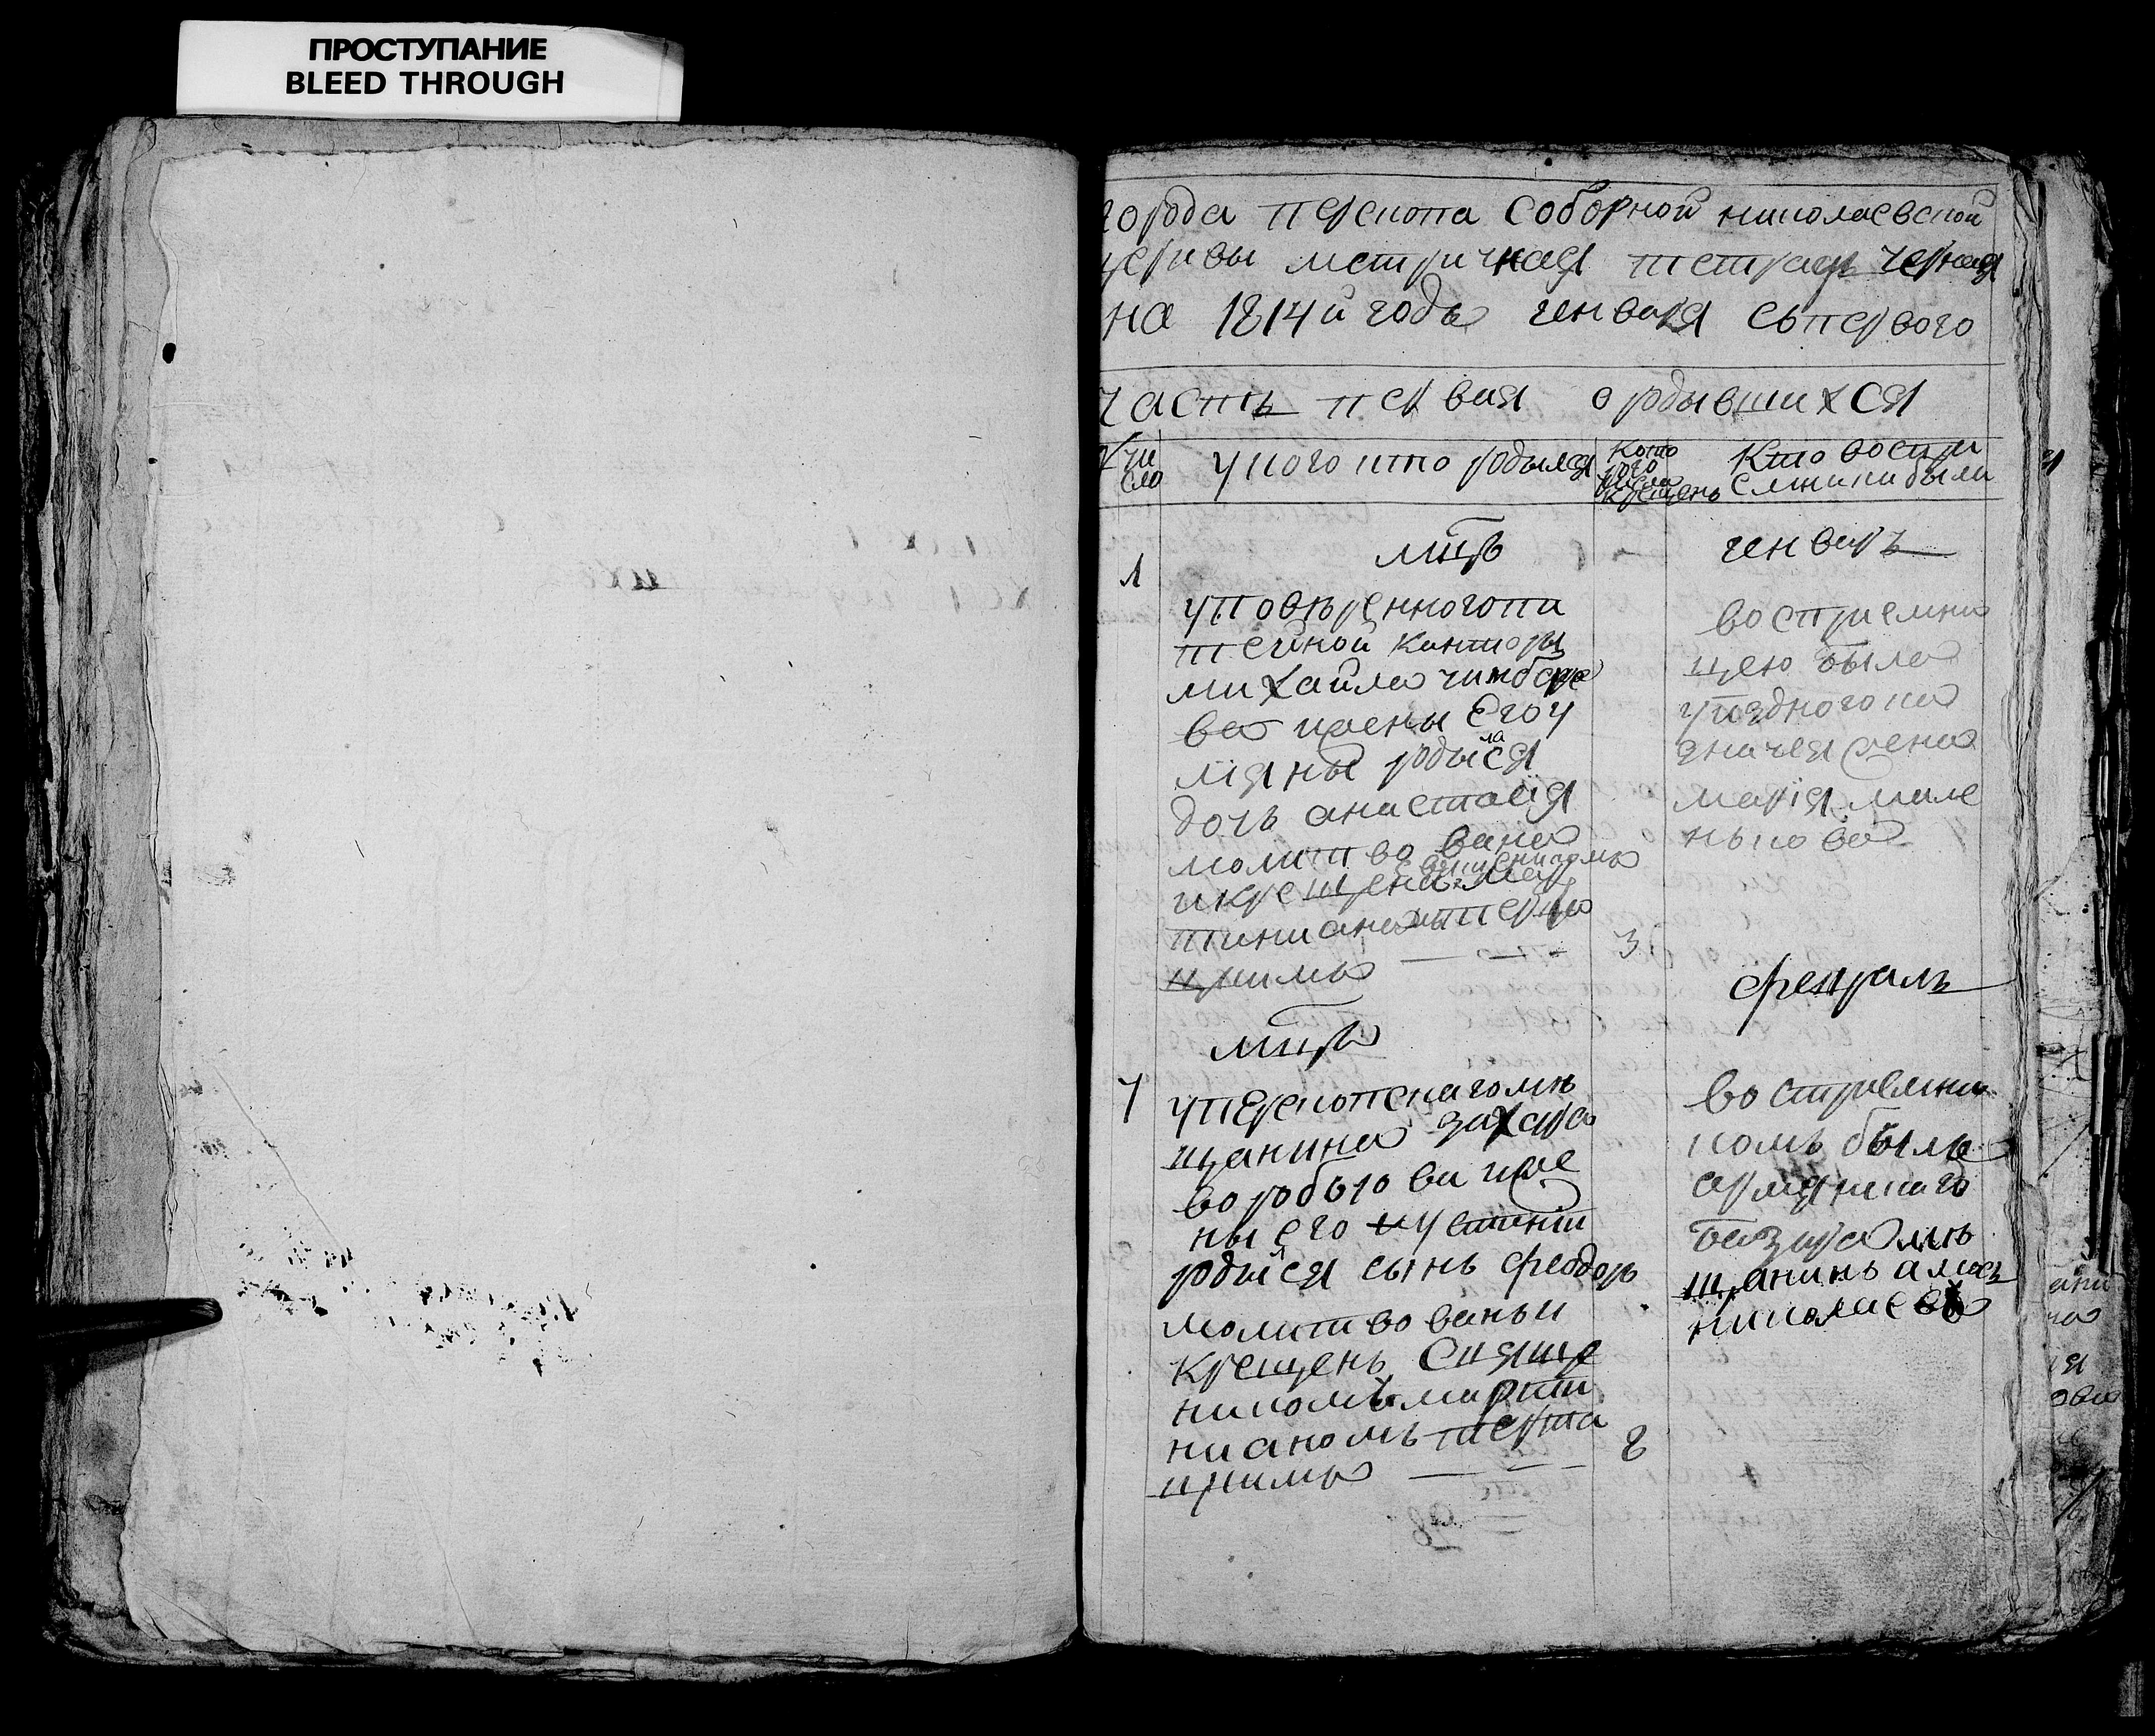 ПРОСТУПАНИЕ
BLEED THROUGH
города перекопа Соборной николаевской
церквы метричная тетрадь черная
на 1814й годъ генваря съ первого
часть первая о родывшихся
число
у кого кто родылся
которого числа крещенъ
Кто воспри
емники были
мцъ
генварь
1
уповѣренного пи
тейной канторы
михайла
ва жены его у
лияны родылася
дочь анастасия
молитвована
и крещена священикомъ мар
тинианомъ
цкимъ
3
восприемни
цею была
уѣздного ка
значея жена
мария мале
ныкова
мцъ
февраль
7
у перекопскаго мѣ
щанина захара
воробьюва жe
ны его устинии
родылся сынъ феодоръ
молитвованъ и
крещенъ Свяще
никомъ марти
нианомъ
цкимъ
8
восприемни
комъ былъ
армянскаго
базара мѣ
щанинъ
николаевъ